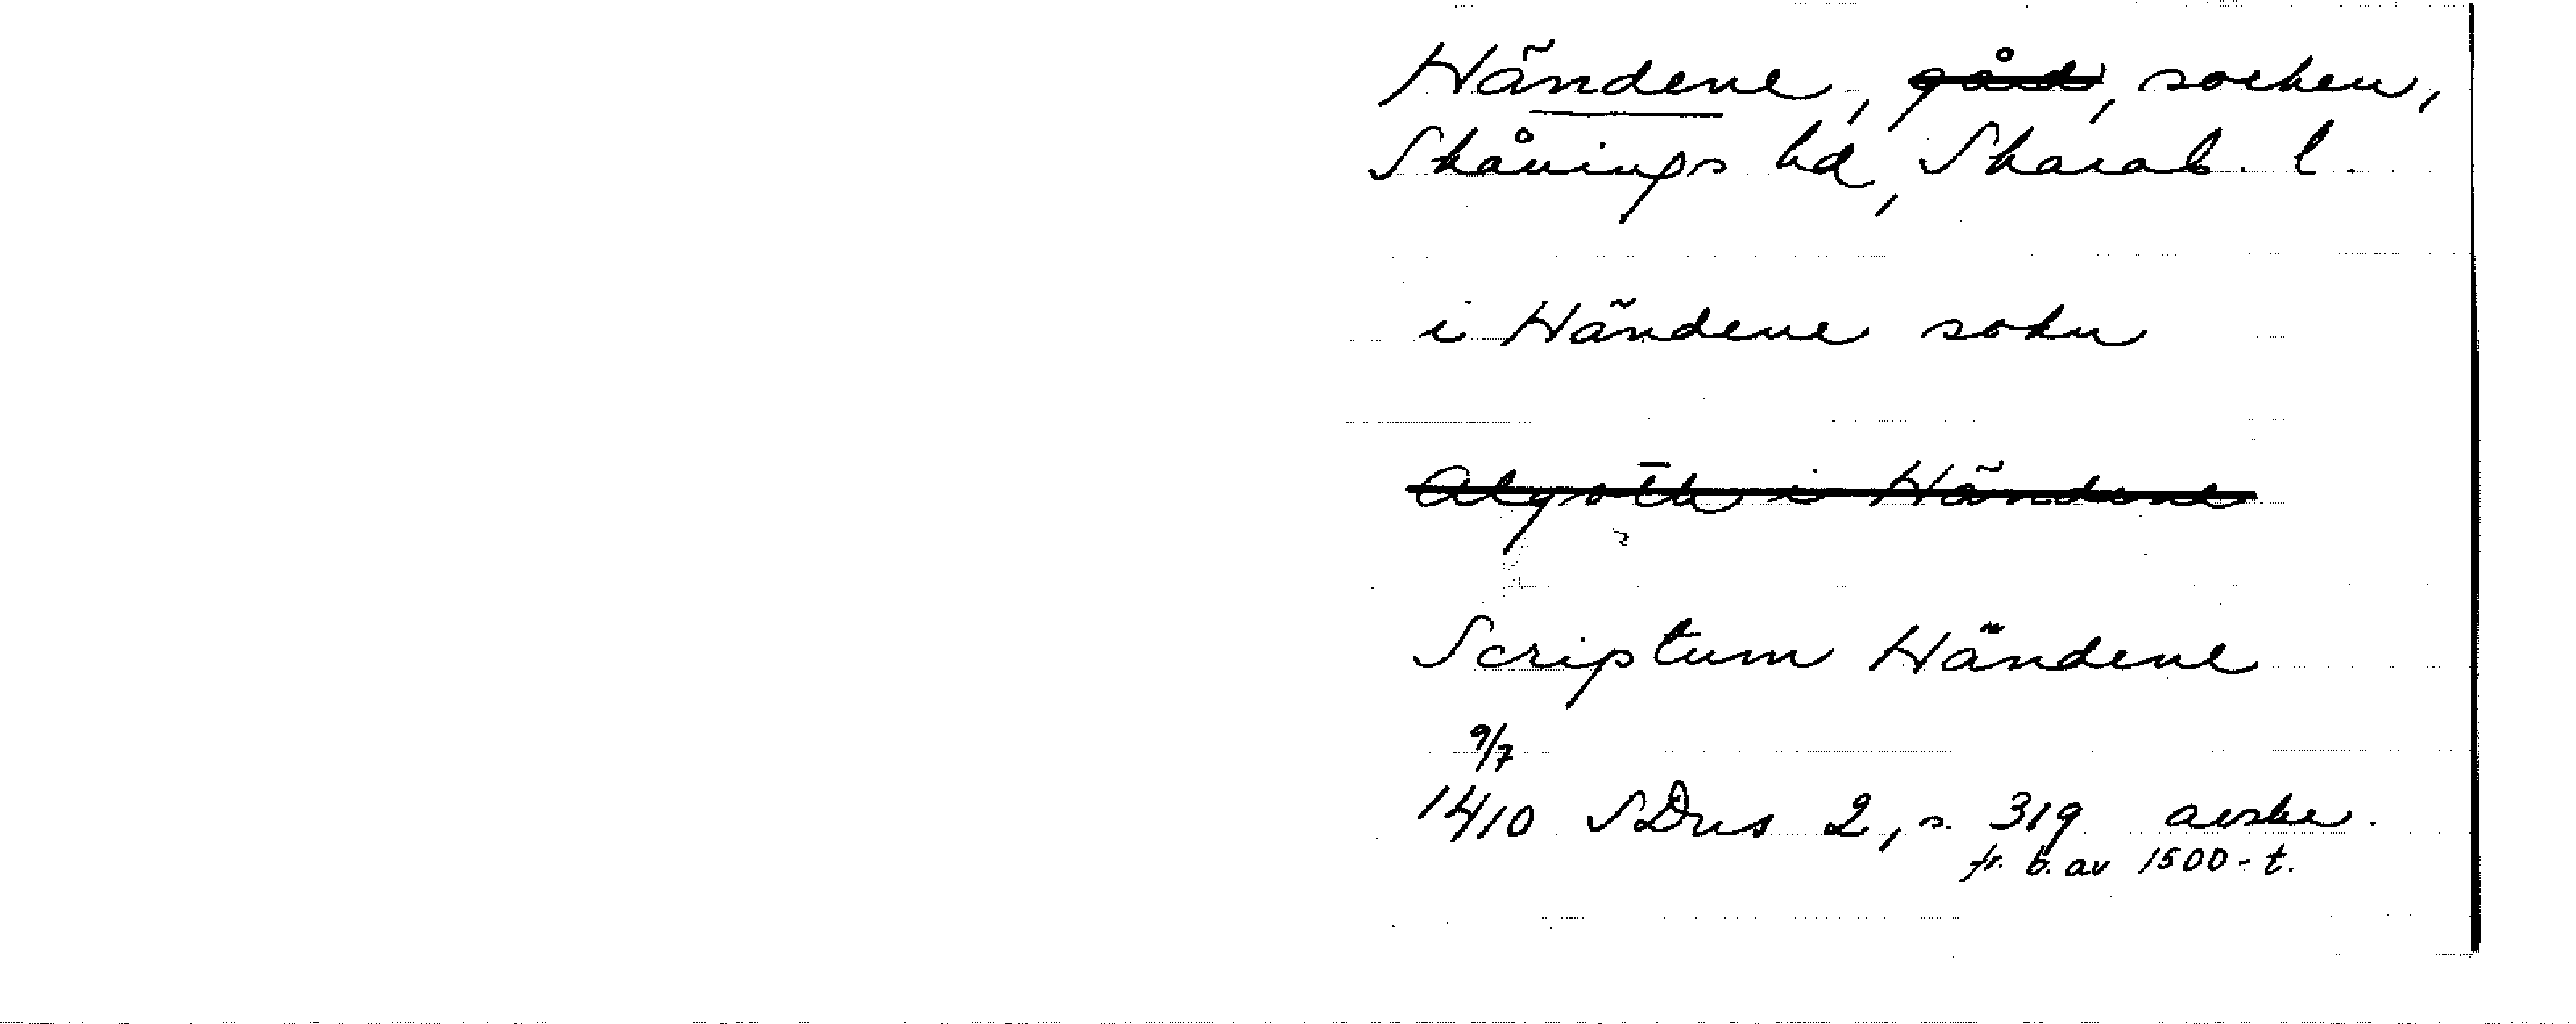 Händene, gåd, socken,
Skånings hd, Skarab. l.
i Händene sokn
Algoth i Händene
Scriptum Händene
9/7
1410 SDns 2, s. 319 avskr.
fr. b. av 1500-t.